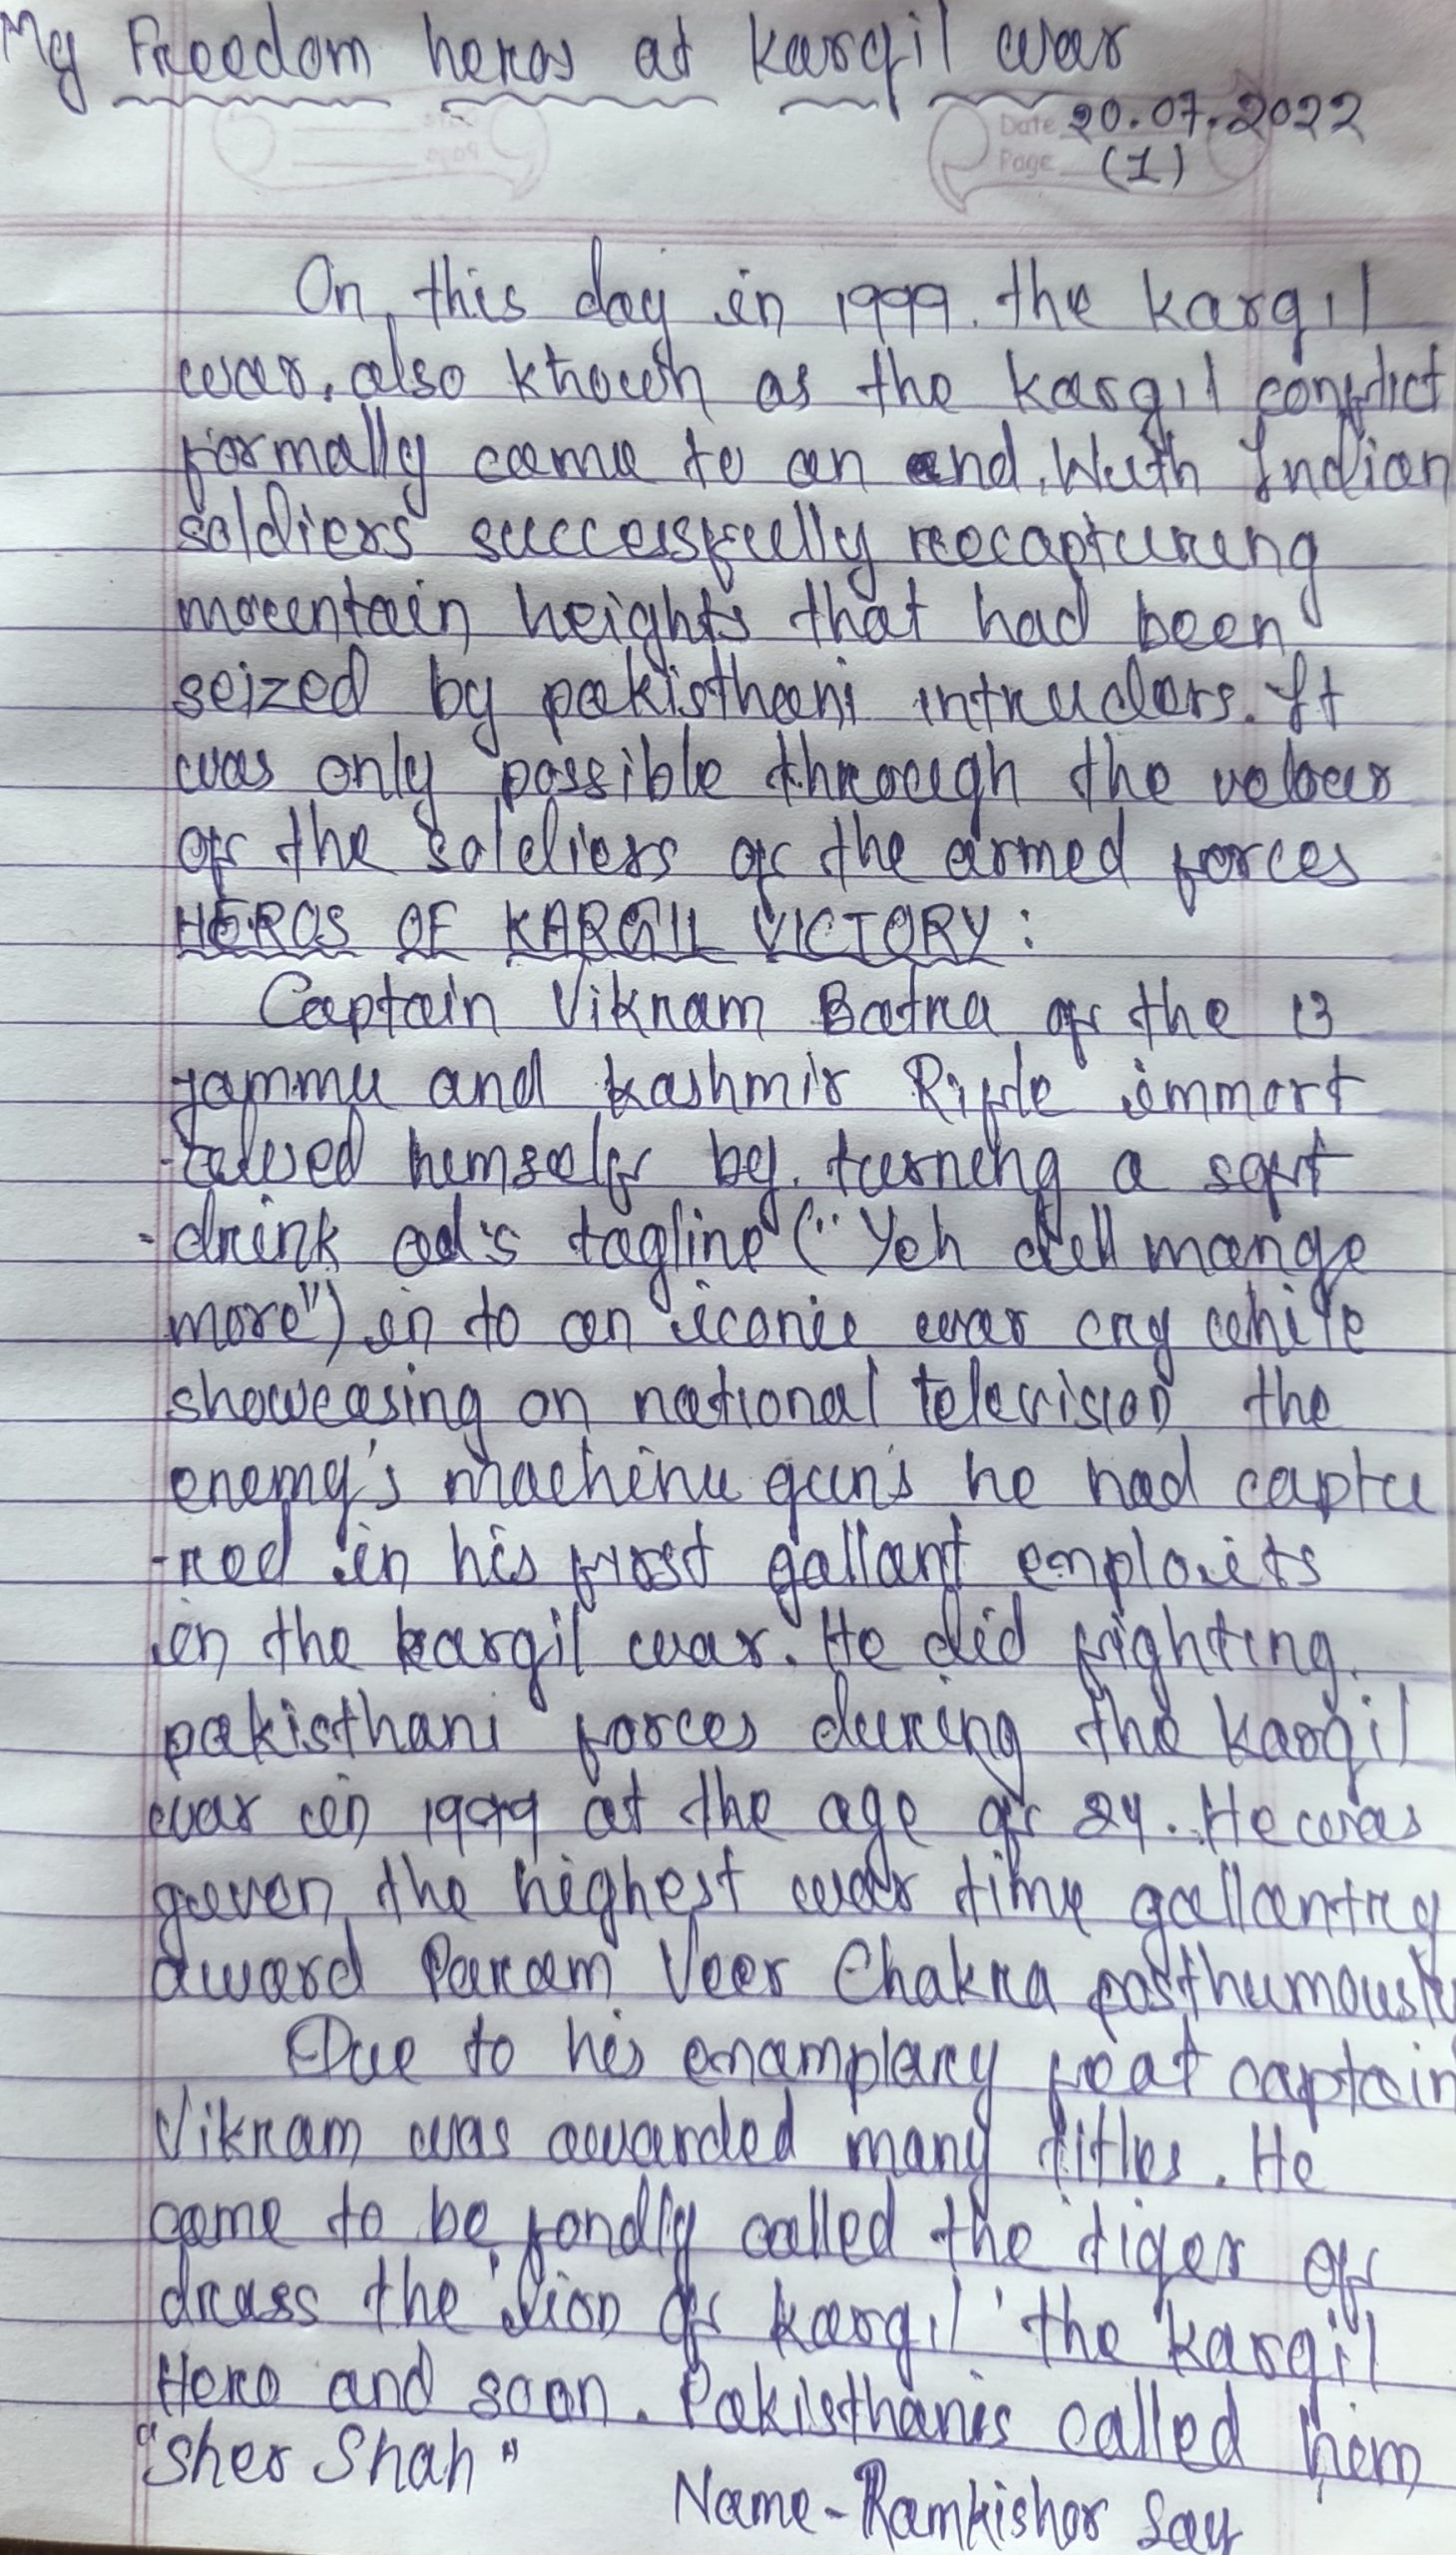 My Freedom heros at Kargil war
Date 20.07.2022
Page (1)
On this day in 1999. the kargil
war. also known as the kargil conflict
formally came to an end. With Indian
soldiers successfully recapturing
mountain heights that had been
seized by pakisthani intruders. It
was only possible through the velour
of the soldiers of the armed forces
HEROS OF KARGIL VICTORY :
Captain Vikram Batra of the 13
jammu and kashmir Rifle immort
-talised himself by. turning a soft
-drink ad's tagline ("Yeh dill mange
more") in to an iconic war cry while
showcasing on national television the
enemy's machine guns he had captu
-red in his first gallant exploits
in the kargil war. He did fighting
pakisthani forces during the kargil
war in 1999 at the age of 24. He was
given the highest war time gallantry
award Param Veer Chakra posthumously
Due to his examplary feat captain
Vikram was awarded many titles. He
came to be fondly called the 'tiger of
drass the 'lion of kargil' the kargil
Hero and soon. Pakisthanis called him
"Sher Shah"
Name-Ramkishor Say